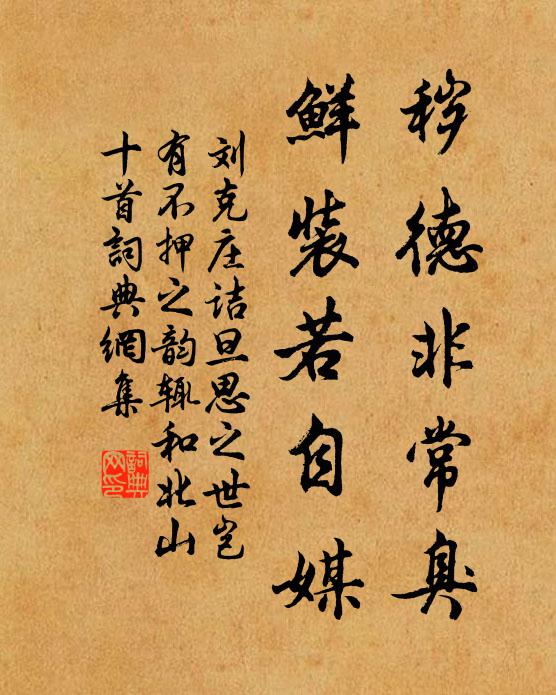 秽德非常臭
鲜装若自媒
刘克庄诘旦思之世岂
有不押之韵辄和北山
十首词典网集
詞典
网印